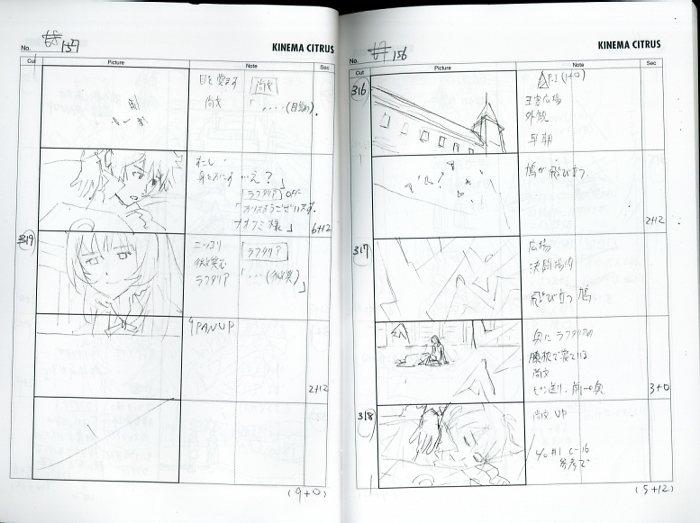 No. 157
KINEMA CITRUS
Cut
Picture
Note
Sec
目を覚ます
尚文
尚文
「....(目覚め)」
すこし
身をおこす
…え？」
ラフタリア OFF
「おはようございます。
ナオフミ様」
6+12
319
ニッコリ
微笑む
ラフタリア
ラフタリア
「…(微笑)」
PAN UP
2+12
(9+0)
No. 156
KINEMA CITRUS
Cut
Picture
Note
Sec
316
F.I (1+0)
王宮広場
外観
早朝
鳩が飛び立つ
2+12
317
広場
決闘場内
飛び立つ鳩
奥にラフタリアの
膝枕で寝ている
尚文
3+0
318
尚文 UP
#1 C-16
(5+12)